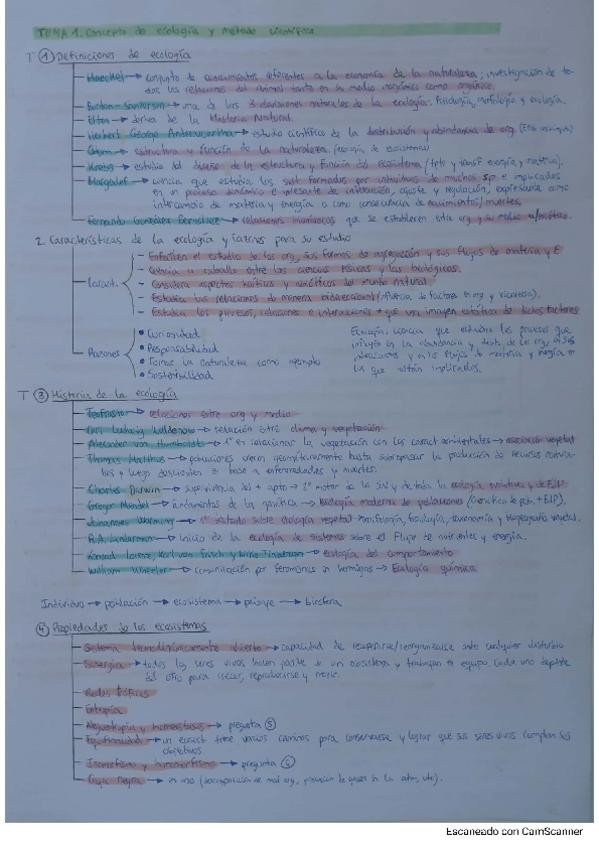 TEMA 1. Concepto de ecología y método científico
T ① Definiciones de ecología
Haeckel → conjunto de conocimientos referentes a la economía de la naturaleza; investigación de to-
das las relaciones del animal tanto en su medio inorgánico como orgánico.
Burdon-Sanderson → una de las 3 divisiones naturales de la ecología: fisiología, morfología y ecología.
Elton → deriva de la Historia Natural.
Herbert George → estudio científico de la distribución y abundancia de org.
Odum → estructura y función de la naturaleza. (ecología de ecosistemas)
Krebs → estudio del de la estructura y función del ecosistema / tpte y transf energía y materia).
Margalef → ciencia que estudia los sist formados por individuos de muchos sp e implicados
en un proceso dinámico e incesante de interacción, ajuste y regulación, expresable como
intercambio de materia y energía o como consecuencia de nacimientos/muertes.
Fernando González Bernáldez → relaciones que se establecen entre org y su medio
2. Características de la ecología y razones para su estudio
Caract.
- Enfatizan el estudio de los org, sus formas de agregación y sus flujos de materia y E
- Ciencia a caballo entre las ciencias físicas y las biológicas.
- Considera aspectos bióticos y abióticos del mundo natural.
- Estudia las relaciones de manera bidireccional / de factores en org y viceversa).
- Estudia los procesos, relaciones e interacciones + que una imagen estática de dichos factores
Razones
• Curiosidad
• Responsabilidad
• Tomar la naturaleza como ejemplo
• Sostenibilidad
Ecología: ciencia que estudia los procesos que
influyen en la abundancia y distr. de los org, a sus
relaciones y a los flujos de materia y energía en
la que están implicados.
T ③ Historia de la ecología
Teofrasto → relaciones entre org y medio
Carl Ludwig Willdenow → relación entre clima y vegetación
Alexander von Humboldt → 1º en relacionar la vegetación con las caract ambientales → asociación vegetal
Thomas Malthus → poblaciones crecen geométricamente hasta sobrepasar la producción de recursos natura-
les y luego descienden en base a enfermedades y muertes.
Charles Darwin → supervivencia del + apto → 1º motor de la y de toda la ecología evolutiva y de
Gregor Mendel → fundamentos de la genética → biología moderna de poblaciones
Johannes Warming → 1º tratado sobre ecología vegetal → morfología, fisiología, taxonomía y biogeografía vegetal.
R.A. Lindeman → inicio de la ecología de sistemas sobre el flujo de nutrientes y energía.
Konrad Lorenz, Karl von Frisch y Niko Tinbergen → Ecología del comportamiento
William Wheeler → comunicación por feromonas en hormigas → Ecología química
Individuo → población → ecosistema → paisaje → biosfera
④ Propiedades de los ecosistemas
Sistema termodinámicamente abierto → capacidad de reorganizarse ante cualquier disturbio
Sinergia → todos los seres vivos hacen parte de un ecosistema y trabajan en equipo. Cada uno depende
del otro para crecer, reproducirse y morir.
Redes tróficas
Entropía
Neguentropía y homeostasis → pregunta ⑤
Equifinalidad → un ecosist tiene varios caminos para conservarse y lograr que sus seres vivos cumplan los
objetivos
Isomorfismo y homomorfismo → pregunta ⑥
Caja negra → en uno (descomposición de mat org, producción de gases en la atm, etc).
Escaneado con CamScanner